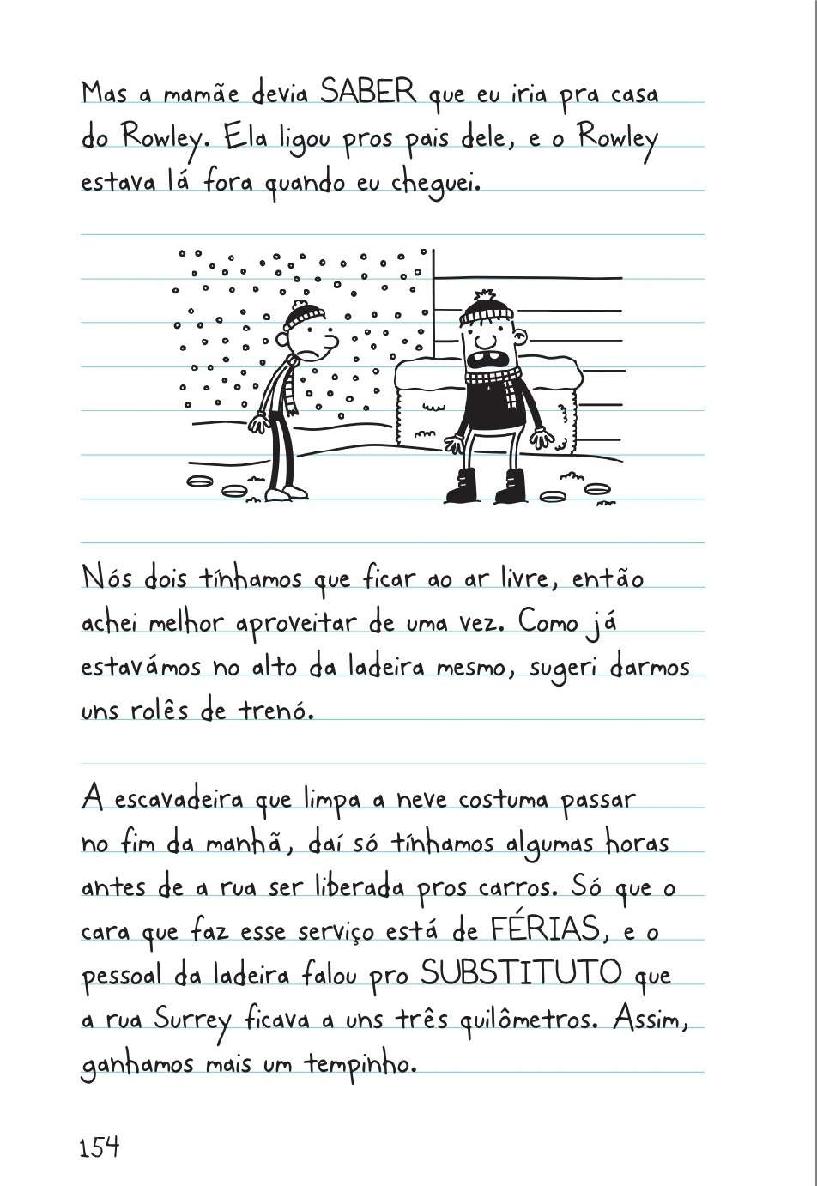 Mas a mamãe devia SABER que eu iria pra casa
do Rowley. Ela ligou pros pais dele, e o Rowley
estava lá fora quando eu cheguei.
Nós dois tínhamos que ficar ao ar livre, então
achei melhor aproveitar de uma vez. Como já
estavámos no alto da ladeira mesmo, sugeri darmos
uns rolês de trenó.
A escavadeira que limpa a neve costuma passar
no fim da manhã, daí só tínhamos algumas horas
antes de a rua ser liberada pros carros. Só que o
cara que faz esse serviço está de FÉRIAS, e o
pessoal da ladeira falou pro SUBSTITUTO que
a rua Surrey ficava a uns três quilômetros. Assim,
ganhamos mais um tempinho.
154